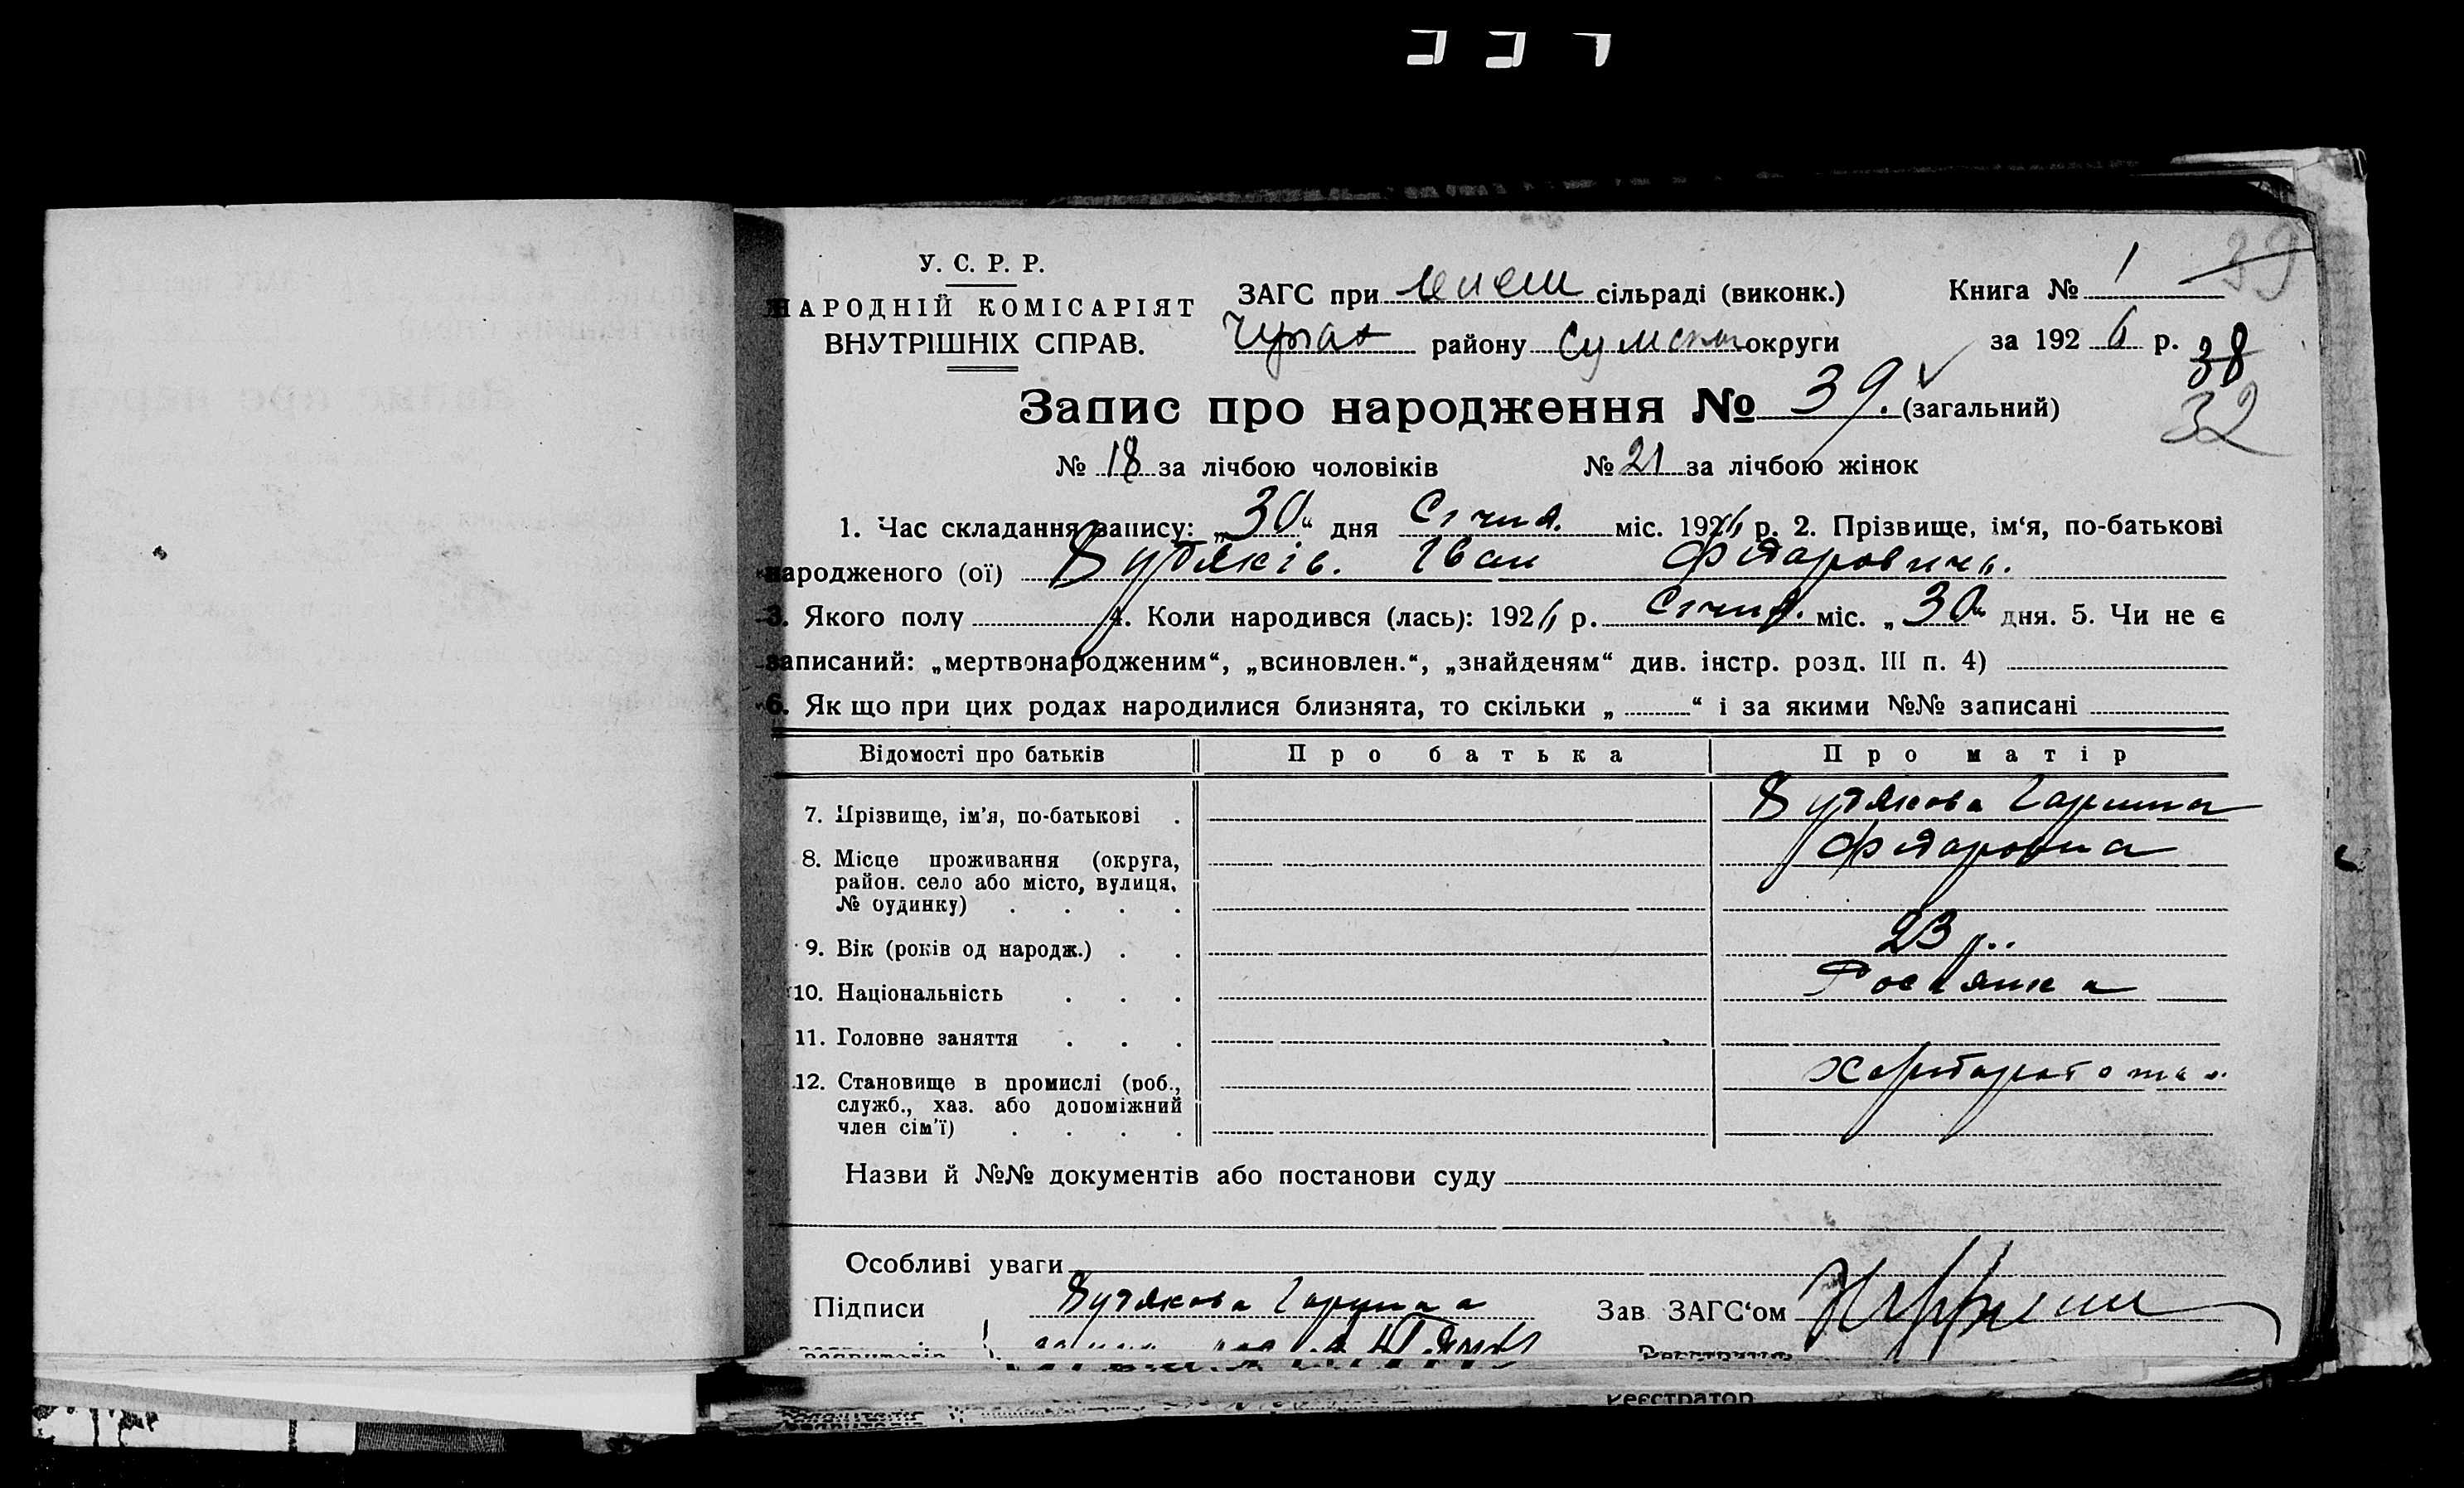 39
У. С. Р. Р.
НАРОДНІЙ КОМІСАРІЯТ
ВНУТРІШНІХ СПРАВ.
ЗАГС при сільраді (виконк.)
району округи
Книга № 1
за 192 6 р.
38
32
Запис про народження № 39. (загальний)
№ 18 за лічбою чоловіків № 21 за лічбою жінок
1. Час складання запису: „30“ дня Січня. міс. 1926 р. 2. Прізвище, ім‘я, по-батькові
народженого (ої) Будяків. Іван
3. Якого полу 4. Коли народився (лась): 1926 р. Січня. міс. „30“ дня. 5. Чи не є
записаний: „мертвонародженим“, „всиновлен.“, „знайденям“ див. інстр. розд. III п. 4)
6. Як що при цих родах народилися близнята, то скільки „ “ і за якими №№ записані
Відомості про батьків Про батька Про матір
7. Прізвище, ім’я, по-батькові . Будякова
8. Місце проживання (округа,
район. село або місто, вулиця,
№ будинку) . . . .
9. Вік (років од народж.) . . 23 р.
10. Національність . . . Росіянка
11. Головне заняття . . .
12. Становище в промислі (роб.,
служб., хаз. або допоміжний
член сім’ї) . . . .
Назви й №№ документів або постанови суду
Особливі уваги
Підписи Будякова Зав ЗАГС‘ом
Реєстратор